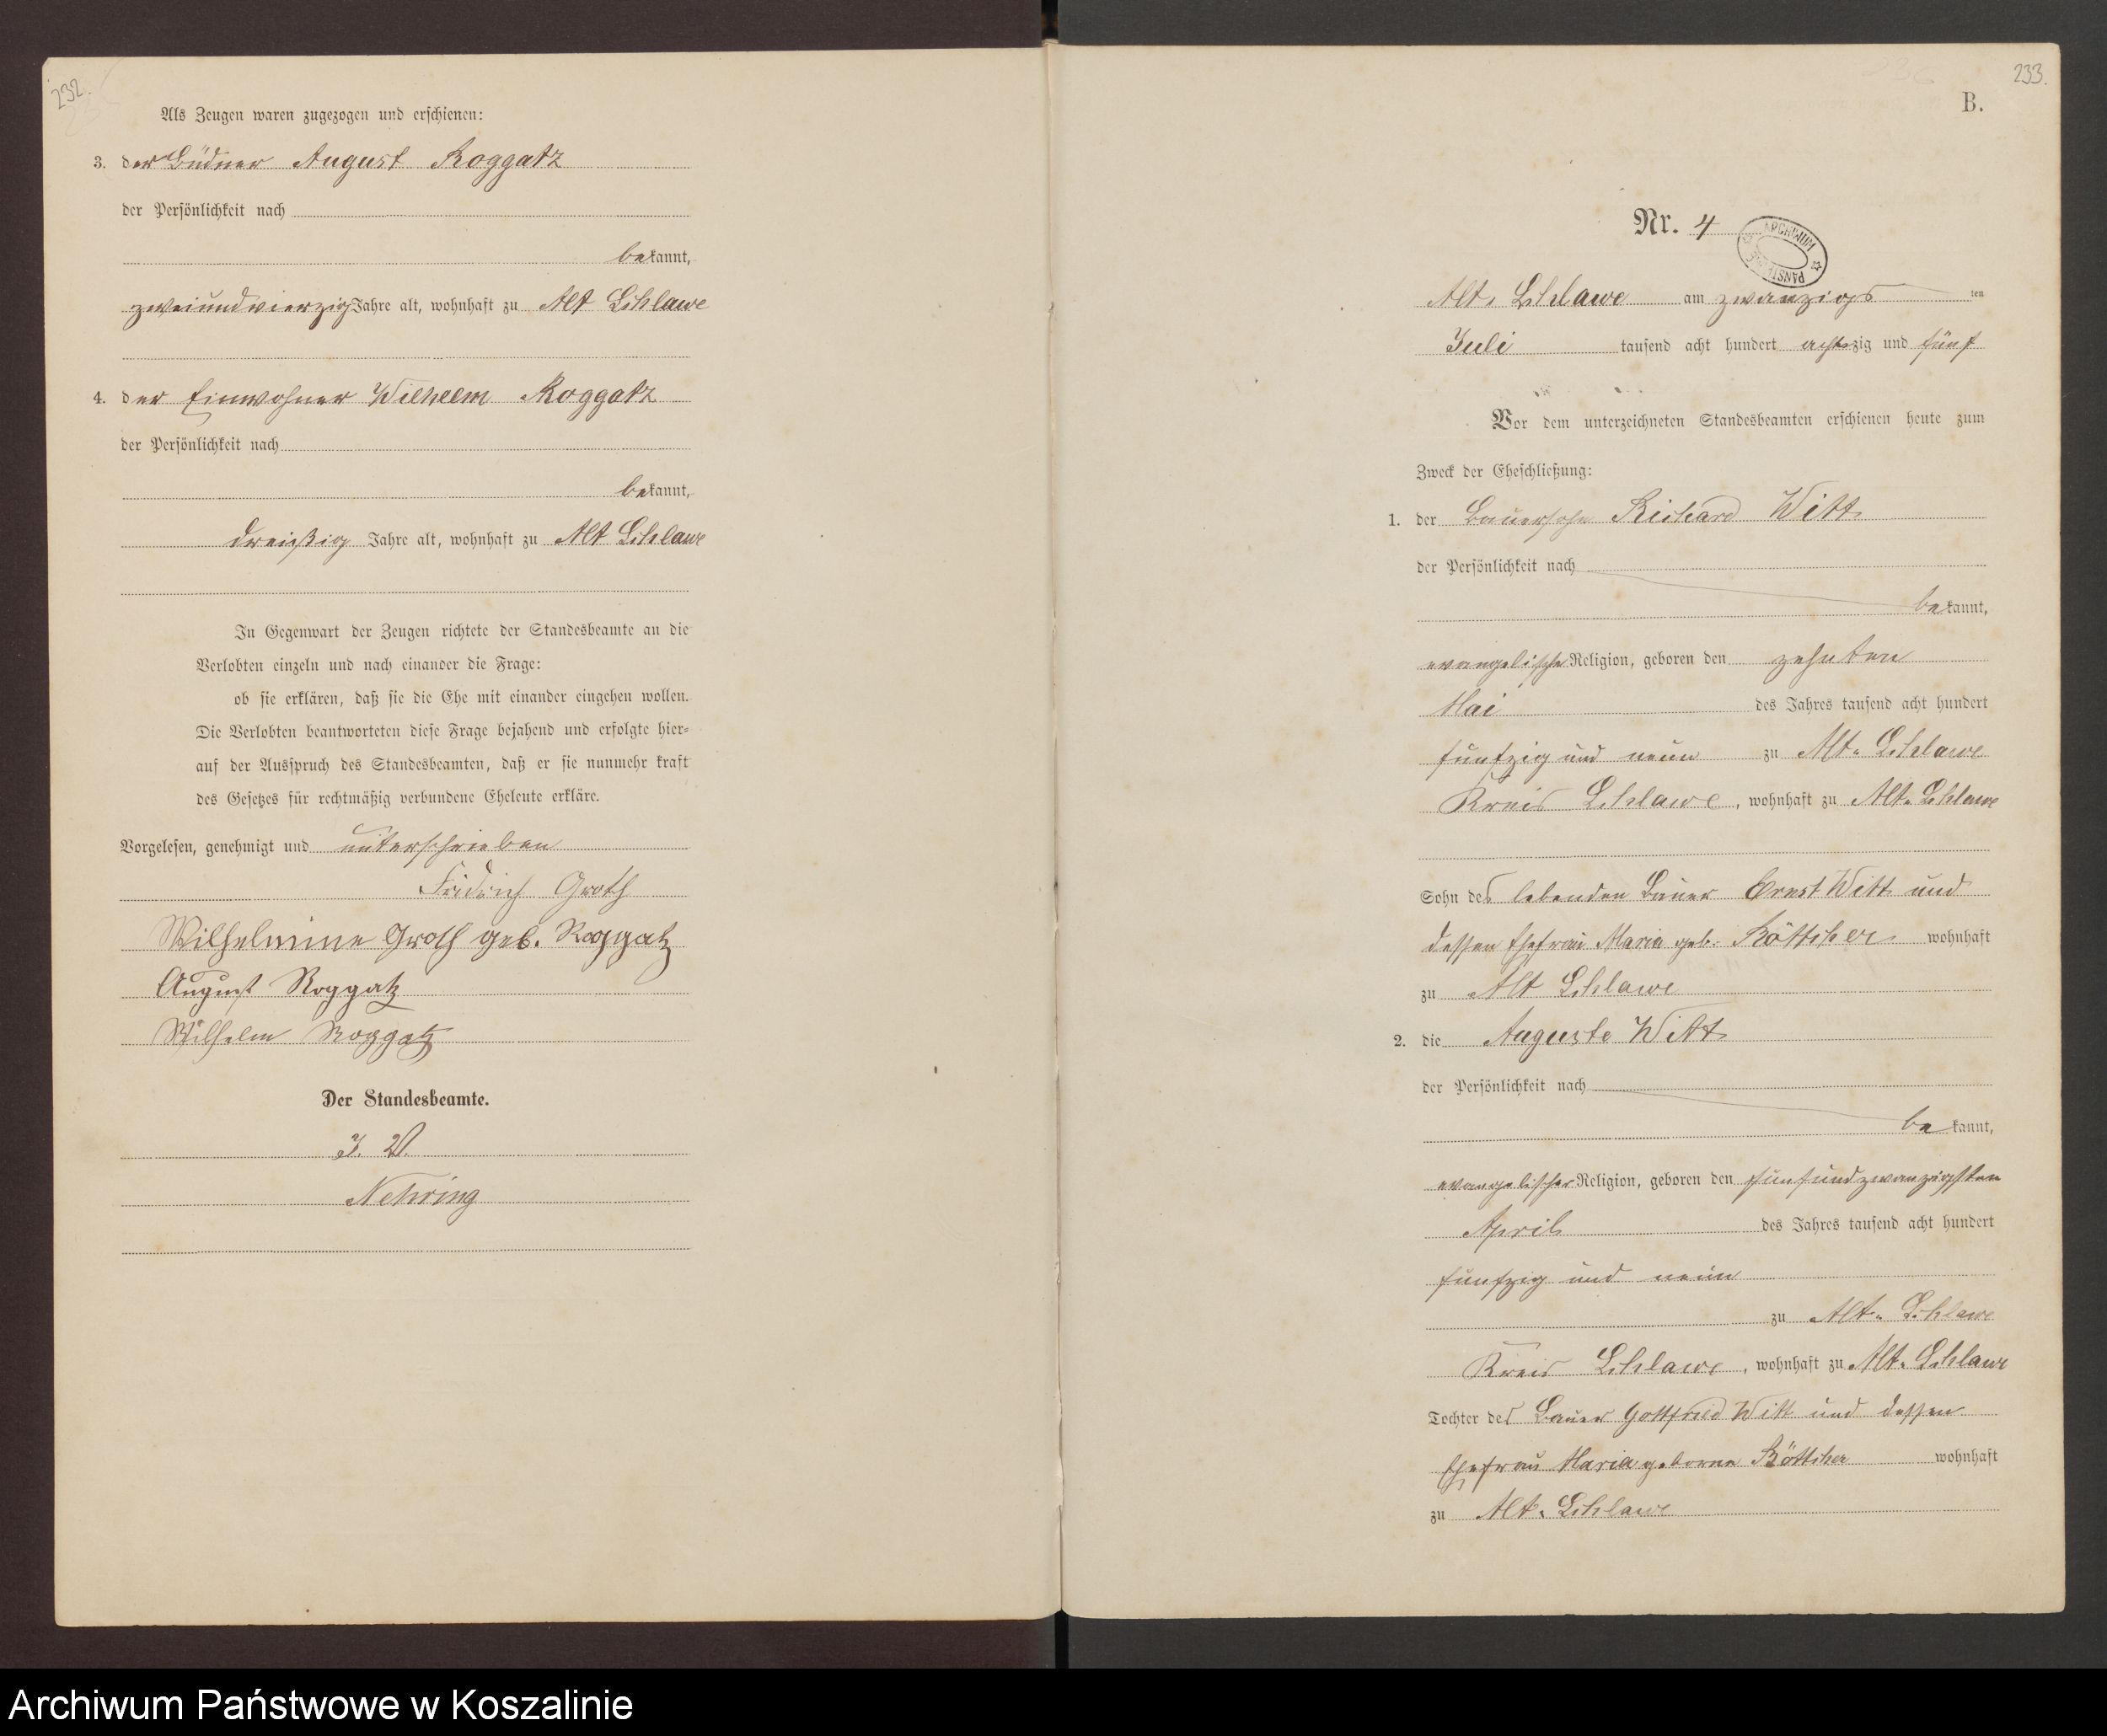 232.
Als Zeugen waren zugezogen und erschienen:
3. der Büdner August Roggatz
der Persönlichkeit nach
bekannt,
zweiundvierzig Jahre alt, wohnhaft zu Alt Schlawe
4. der Einwohner Wilhelm Roggatz
der Persönlichkeit nach
bekannt,
dreißig Jahre alt, wohnhaft zu Alt Schlawe
In Gegenwart der Zeugen richtete der Standesbeamte an die
Verlobten einzeln und nach einander die Frage:
ob sie erklären, daß sie die Ehe mit einander eingehen wollen.
Die Verlobten beantworteten diese Frage bejahend und erfolgte hier-
auf der Ausspruch des Standesbeamten, daß er sie nunmehr kraft
des Gesetzes für rechtmäßig verbundene Eheleute erkläre.
Vorgelesen, genehmigt und unterschrieben
Fridrich Groth
Wilhelmine Groth geb. Roggatz
August Roggatz
Wilhelm Roggatz
Der Standesbeamte.
J. V.
Nehring
233.
B.
Nr. 4
ARCHIWUM PAŃSTWOWE
Alt-Schlawe am zwanzigsten
Juli tausend acht hundert achtzig und fünf
Vor dem unterzeichneten Standesbeamten erschienen heute zum
Zweck der Eheschließung:
1. der Bauersohn Richard Witt
der Persönlichkeit nach
bekannt,
evangelische Religion, geboren den zehnten
Mai des Jahres tausend acht hundert
funfzig und neun zu Alt-Schlawe
Kreis Schlawe, wohnhaft zu Alt-Schlawe
Sohn des lebenden Bauer Ernst Witt und
dessen Ehefrau Maria geb. Böttcher wohnhaft
zu Alt Schlawe
2. die Auguste Witt
der Persönlichkeit nach
bekannt,
evangelischer Religion, geboren den funfundzwanzigsten
April des Jahres tausend acht hundert
funfzig und neun
zu Alt-Schlawe
Kreis Schlawe, wohnhaft zu Alt-Schlawe
Tochter des Bauer Gottfried Witt und dessen
Ehefrau Maria geborne Böttcher wohnhaft
zu Alt-Schlawe
Archiwum Państwowe w Koszalinie